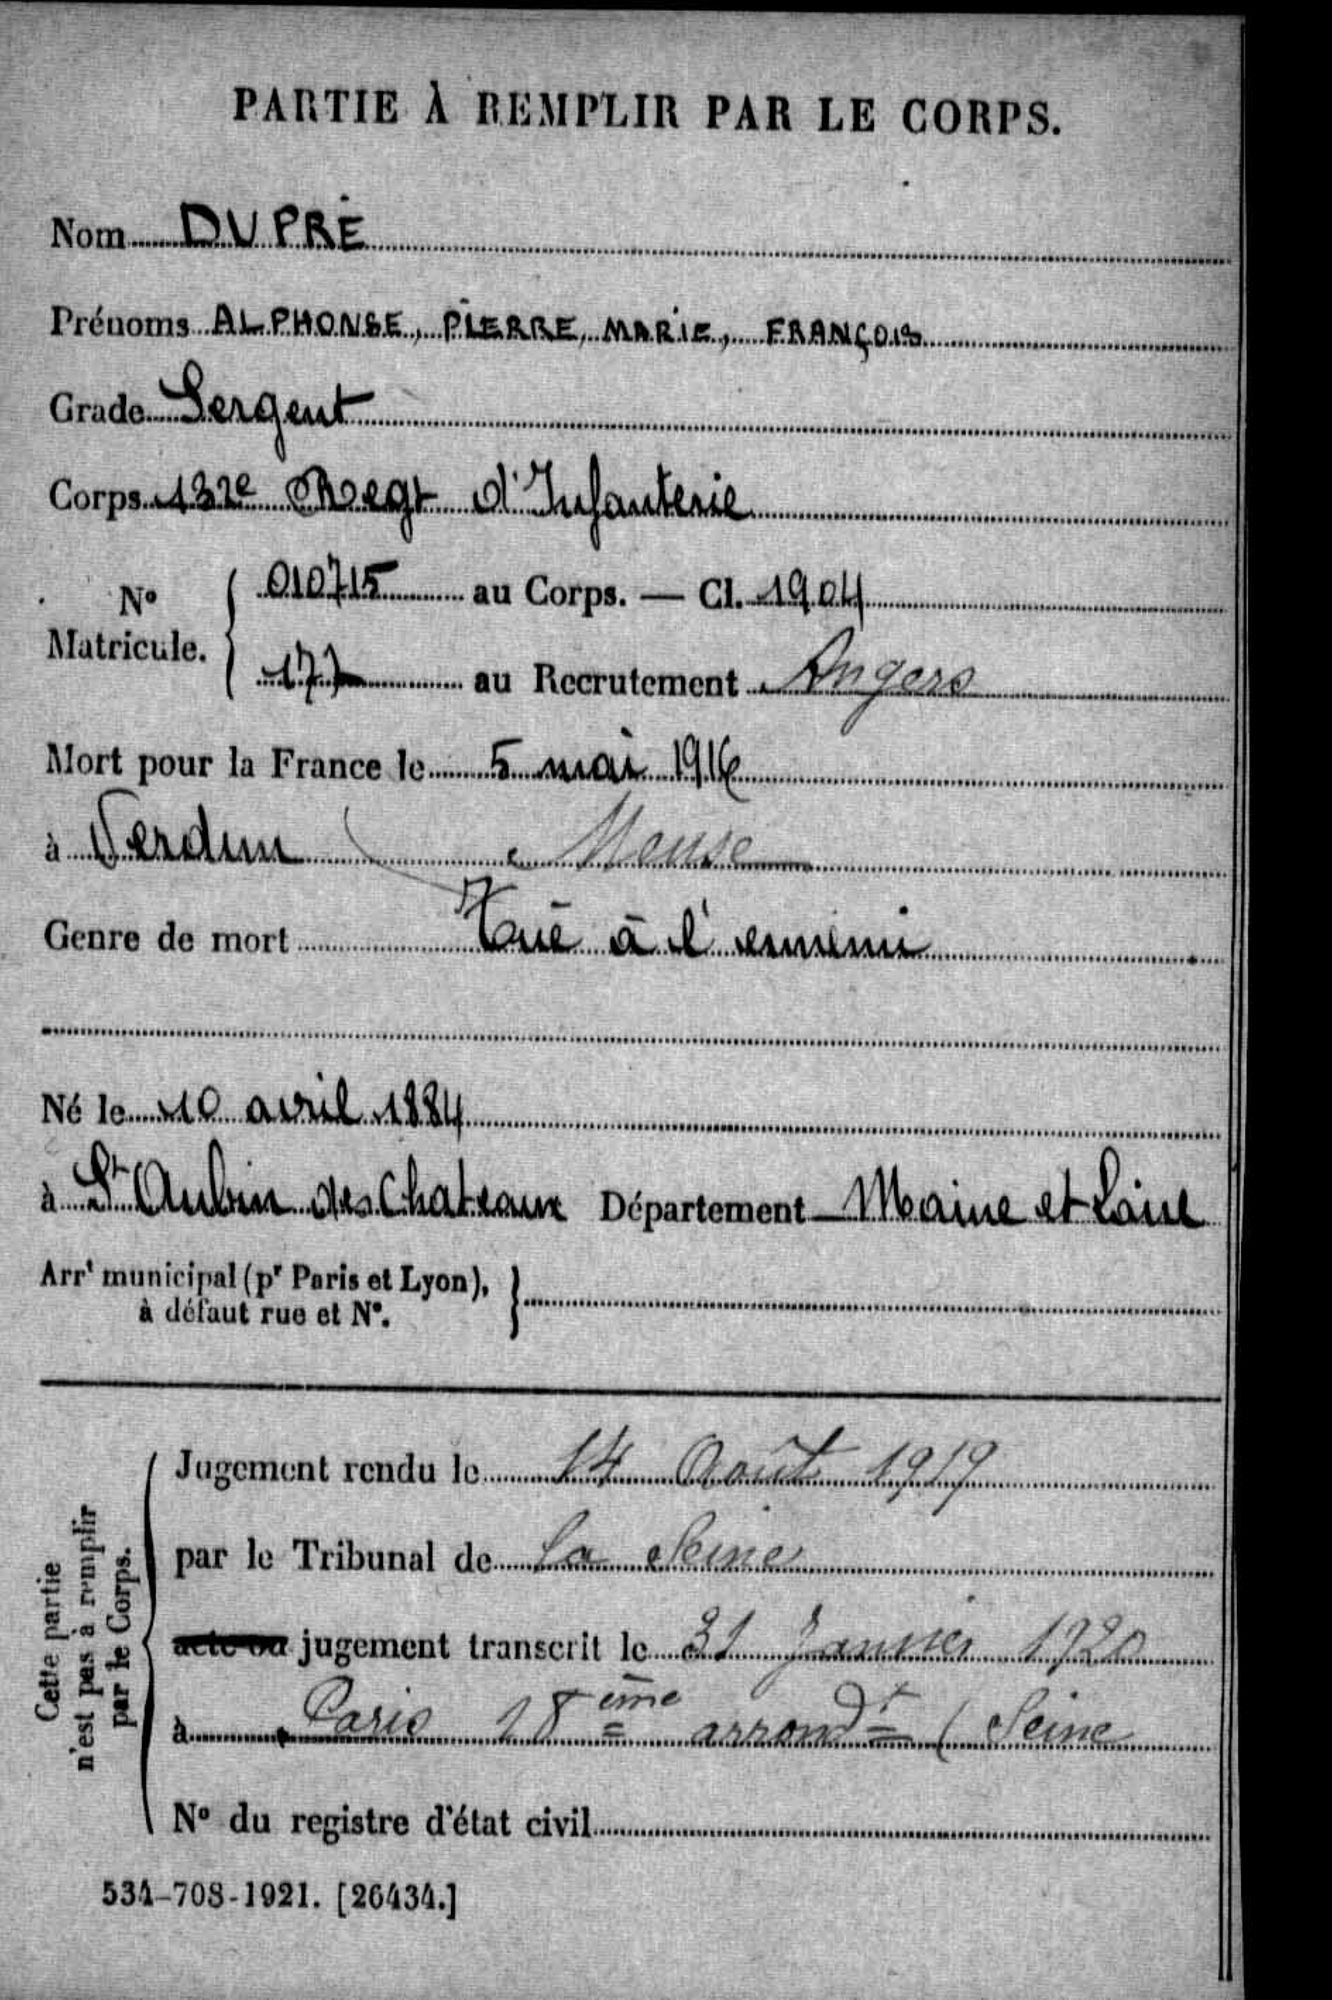 PARTIE À REMPLIR PAR LE CORPS.
Nom DUPRÉ
Prénoms ALPHONSE, PIERRE, MARIE, FRANÇOIS
Grade Sergent
Corps 132e Regt d'Infanterie
N° Matricule. { 010715 au Corps. — Cl. 1904
177 au Recrutement Angers
Mort pour la France le 5 mai 1916
à Verdun Meuse
Genre de mort Tué à l'ennemi
Né le 10 avril 1884
à St Aubin des Chateaux Département Maine et Loire
Arrt municipal (pr Paris et Lyon), }
à défaut rue et N°.
Cette partie
n'est pas à remplir
par le Corps.
Jugement rendu le 14 Août 1919
par le Tribunal de La Seine
acte ou jugement transcrit le 31 Janvier 1920
à Paris 18ème arrondt (Seine
N° du registre d'état civil
534-708-1921. [26434.]